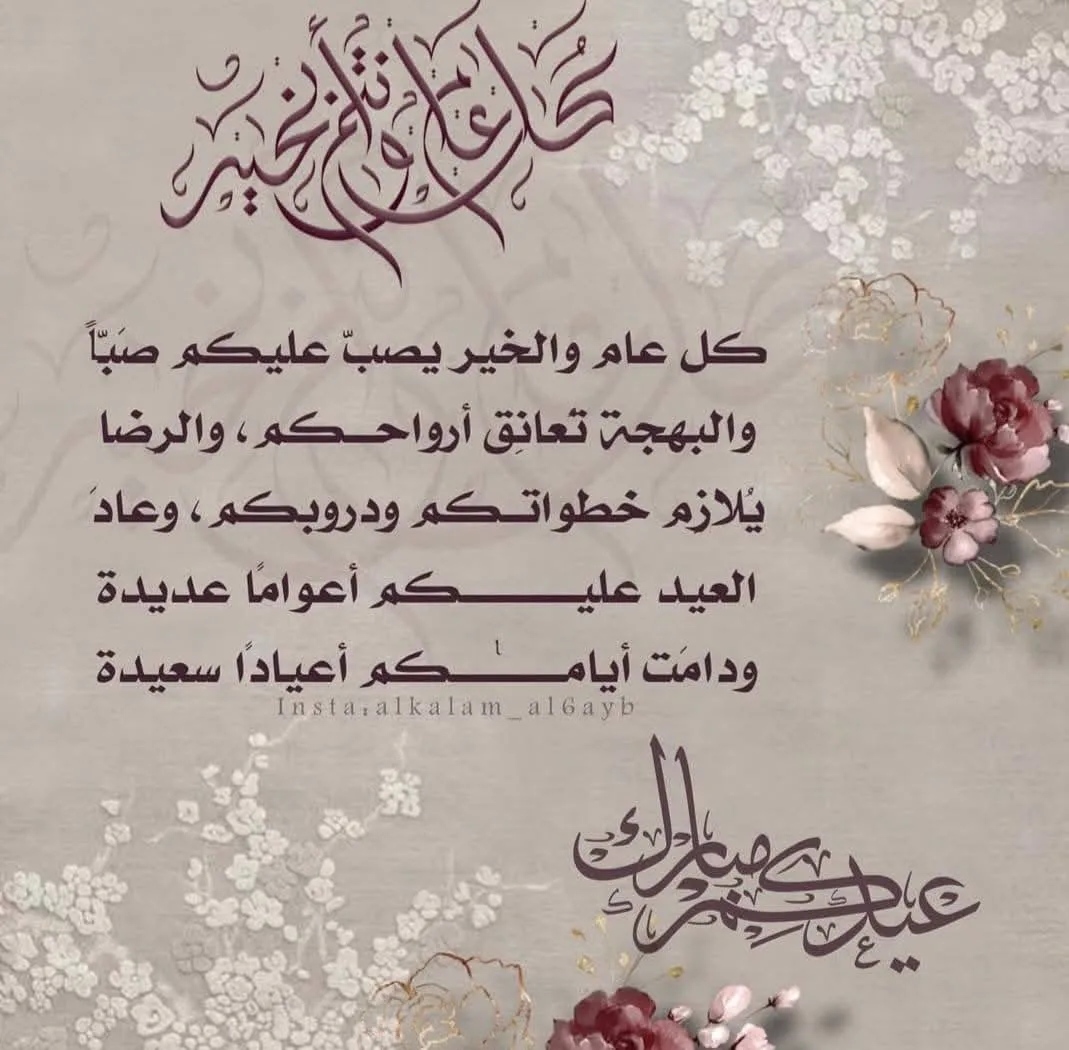 كل عام وأنتم بخير
كل عام والخير يصبّ عليكم صَبّاً
والبهجة تعانِق أرواحكم، والرضا
يُلازم خطواتكم ودروبكم، وعادَ
العيد عليكم أعوامًا عديدة
ودامَت أيامكم أعيادًا سعيدة
Insta:alkalam_al6ayb
عيدكم مبارك